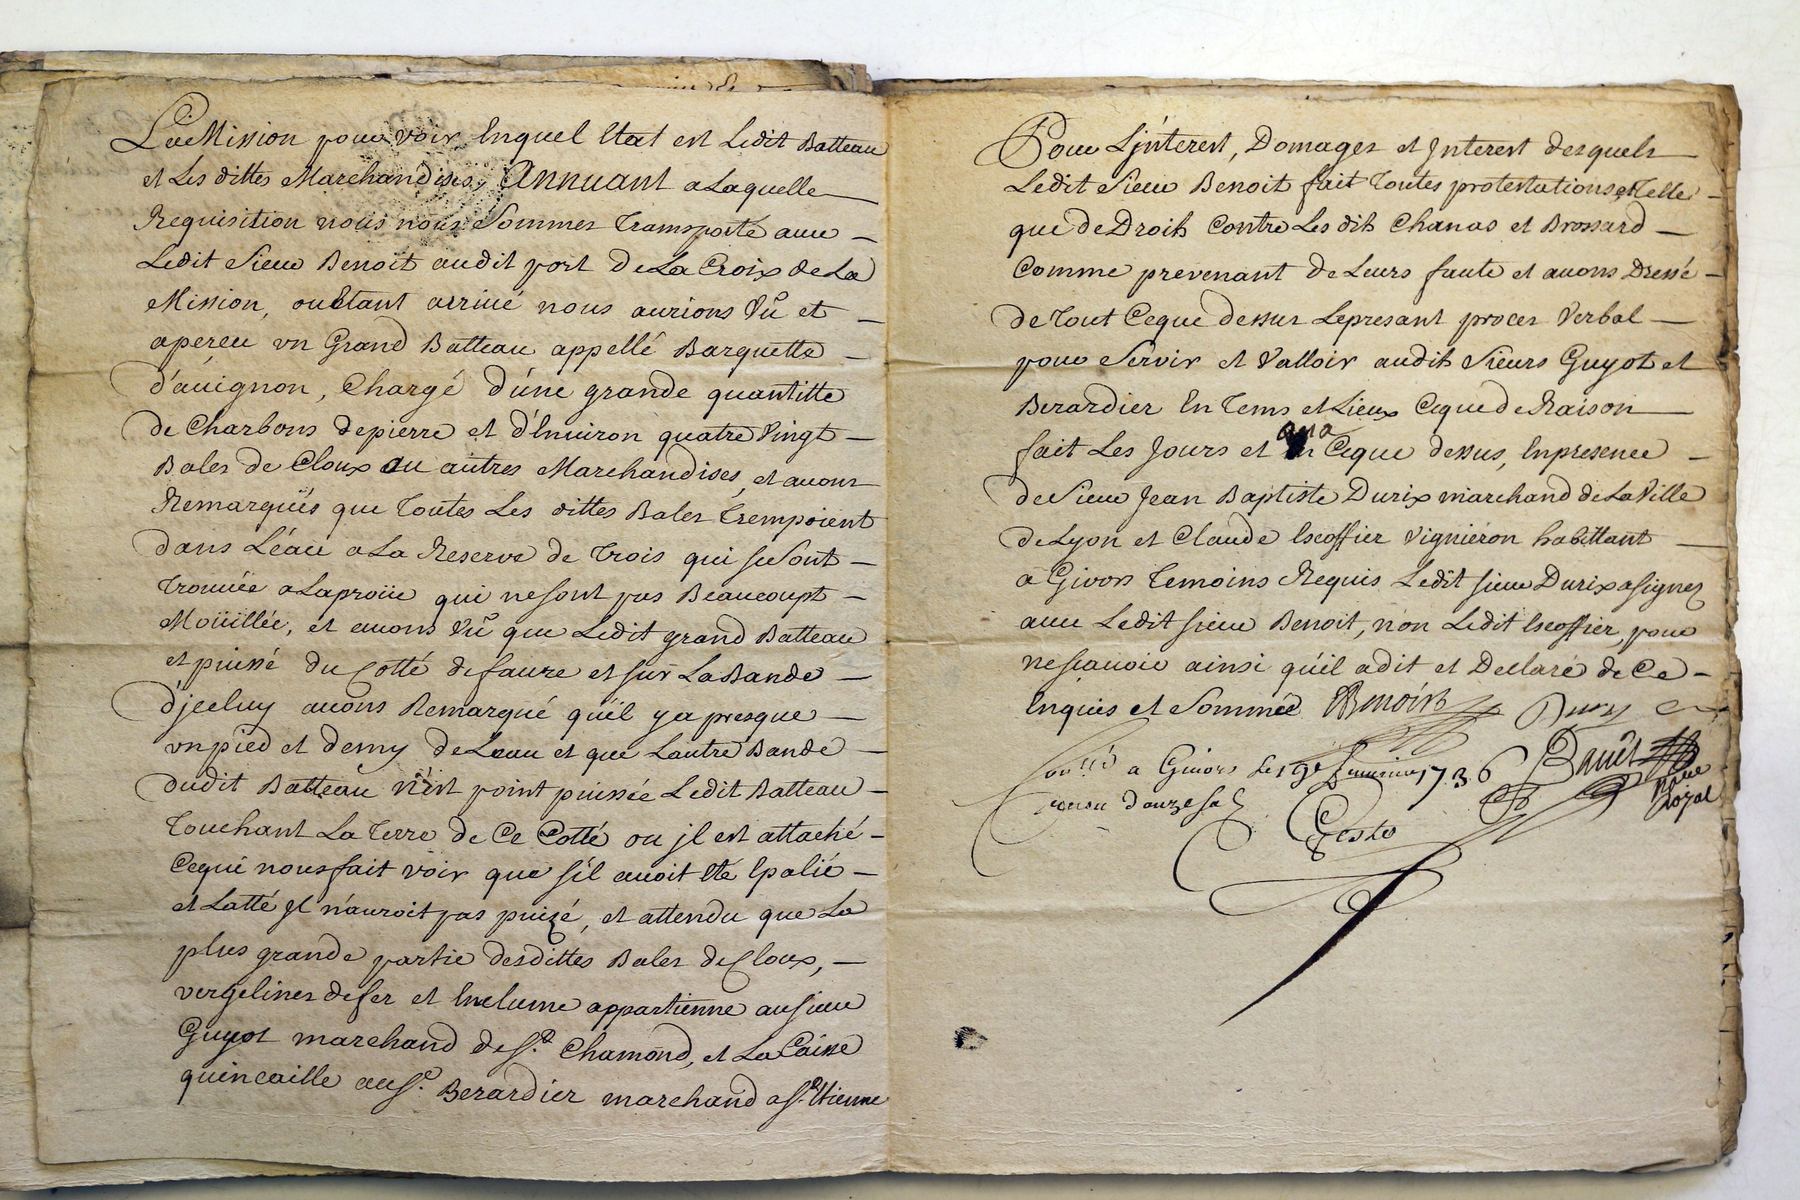 La Mission pour voir, Enquel Etat est Ledit Batteau
et Les dittes Marchandises, Annuant a Laquelle
Requisition nous nous Sommes Transporté avec
Ledit Sieur Benoit audit port De La Croix de La
Mission, ou Etant arrivé nous aurions Vû et
aperceu un Grand Batteau appellé Barquette
d'auignon, Chargé d'une grande quantitte
de Charbons depierre et d'Enuiron quatre Vingt
Bales de Cloux ou autres Marchandises, et auons
Remarqués que Toutes Les dittes Bales Trempoient
dans Léau a La Reserve de Trois qui se sont
Trouuée a Laproüe qui ne sont pas Beaucoupt
Moüillée, et auons Vû que Ledit grand Batteau
et puissé du Cotté de faure et sur La Bande
d'jceluy auons Remarqué qu'il y a presque
un pied et demy de Leau et que Lautre Bande
dudit Batteau n'est point puissée Ledit Batteau
Touchant La Terre de Ce Cotté ou jl est attaché
Cequi nous fait voir que s'il auoit Eté Epalié
et Latté jl n'auroit pas puizé, et attendu que La
plus grande partie desdittes Bales de Cloux,
vergelines defer et Enclume appartienne au sieur
Guyot marchand de St. Chamond, et La Caisse
quincaille au Sr. Berardier marchand a St. Etienne
Pour Ljnterest, Domages et Jnterest desquels
Ledit Sieur Benoit fait Toutes protestations et Telle
que de Droit Contre Les dits Chanas et Brossard
Comme prevenant de Leurs faute et auons Dressé
de Tout Ceque dessus Lepresant proces Verbal
pour Servir et Valloir audits Sieurs Guyot et
Berardier En Tems et Lieux Ceque de Raison
fait Les Jours et an que dessus, Enpresence
de Sieur Jean Baptiste Durix marchand de La Ville
de Lyon et Claude Escoffier Vignieron habittant
a Givors Temoins Requis Ledit sieur Durix a signez
avec Ledit sieur Benoit, non Ledit Escoffier, pour
ne sçauoir ainsi qu'il a dit et Declaré de Ce
Enquis et Sommée Benoist Durix
a Giuors Le 19e 1736